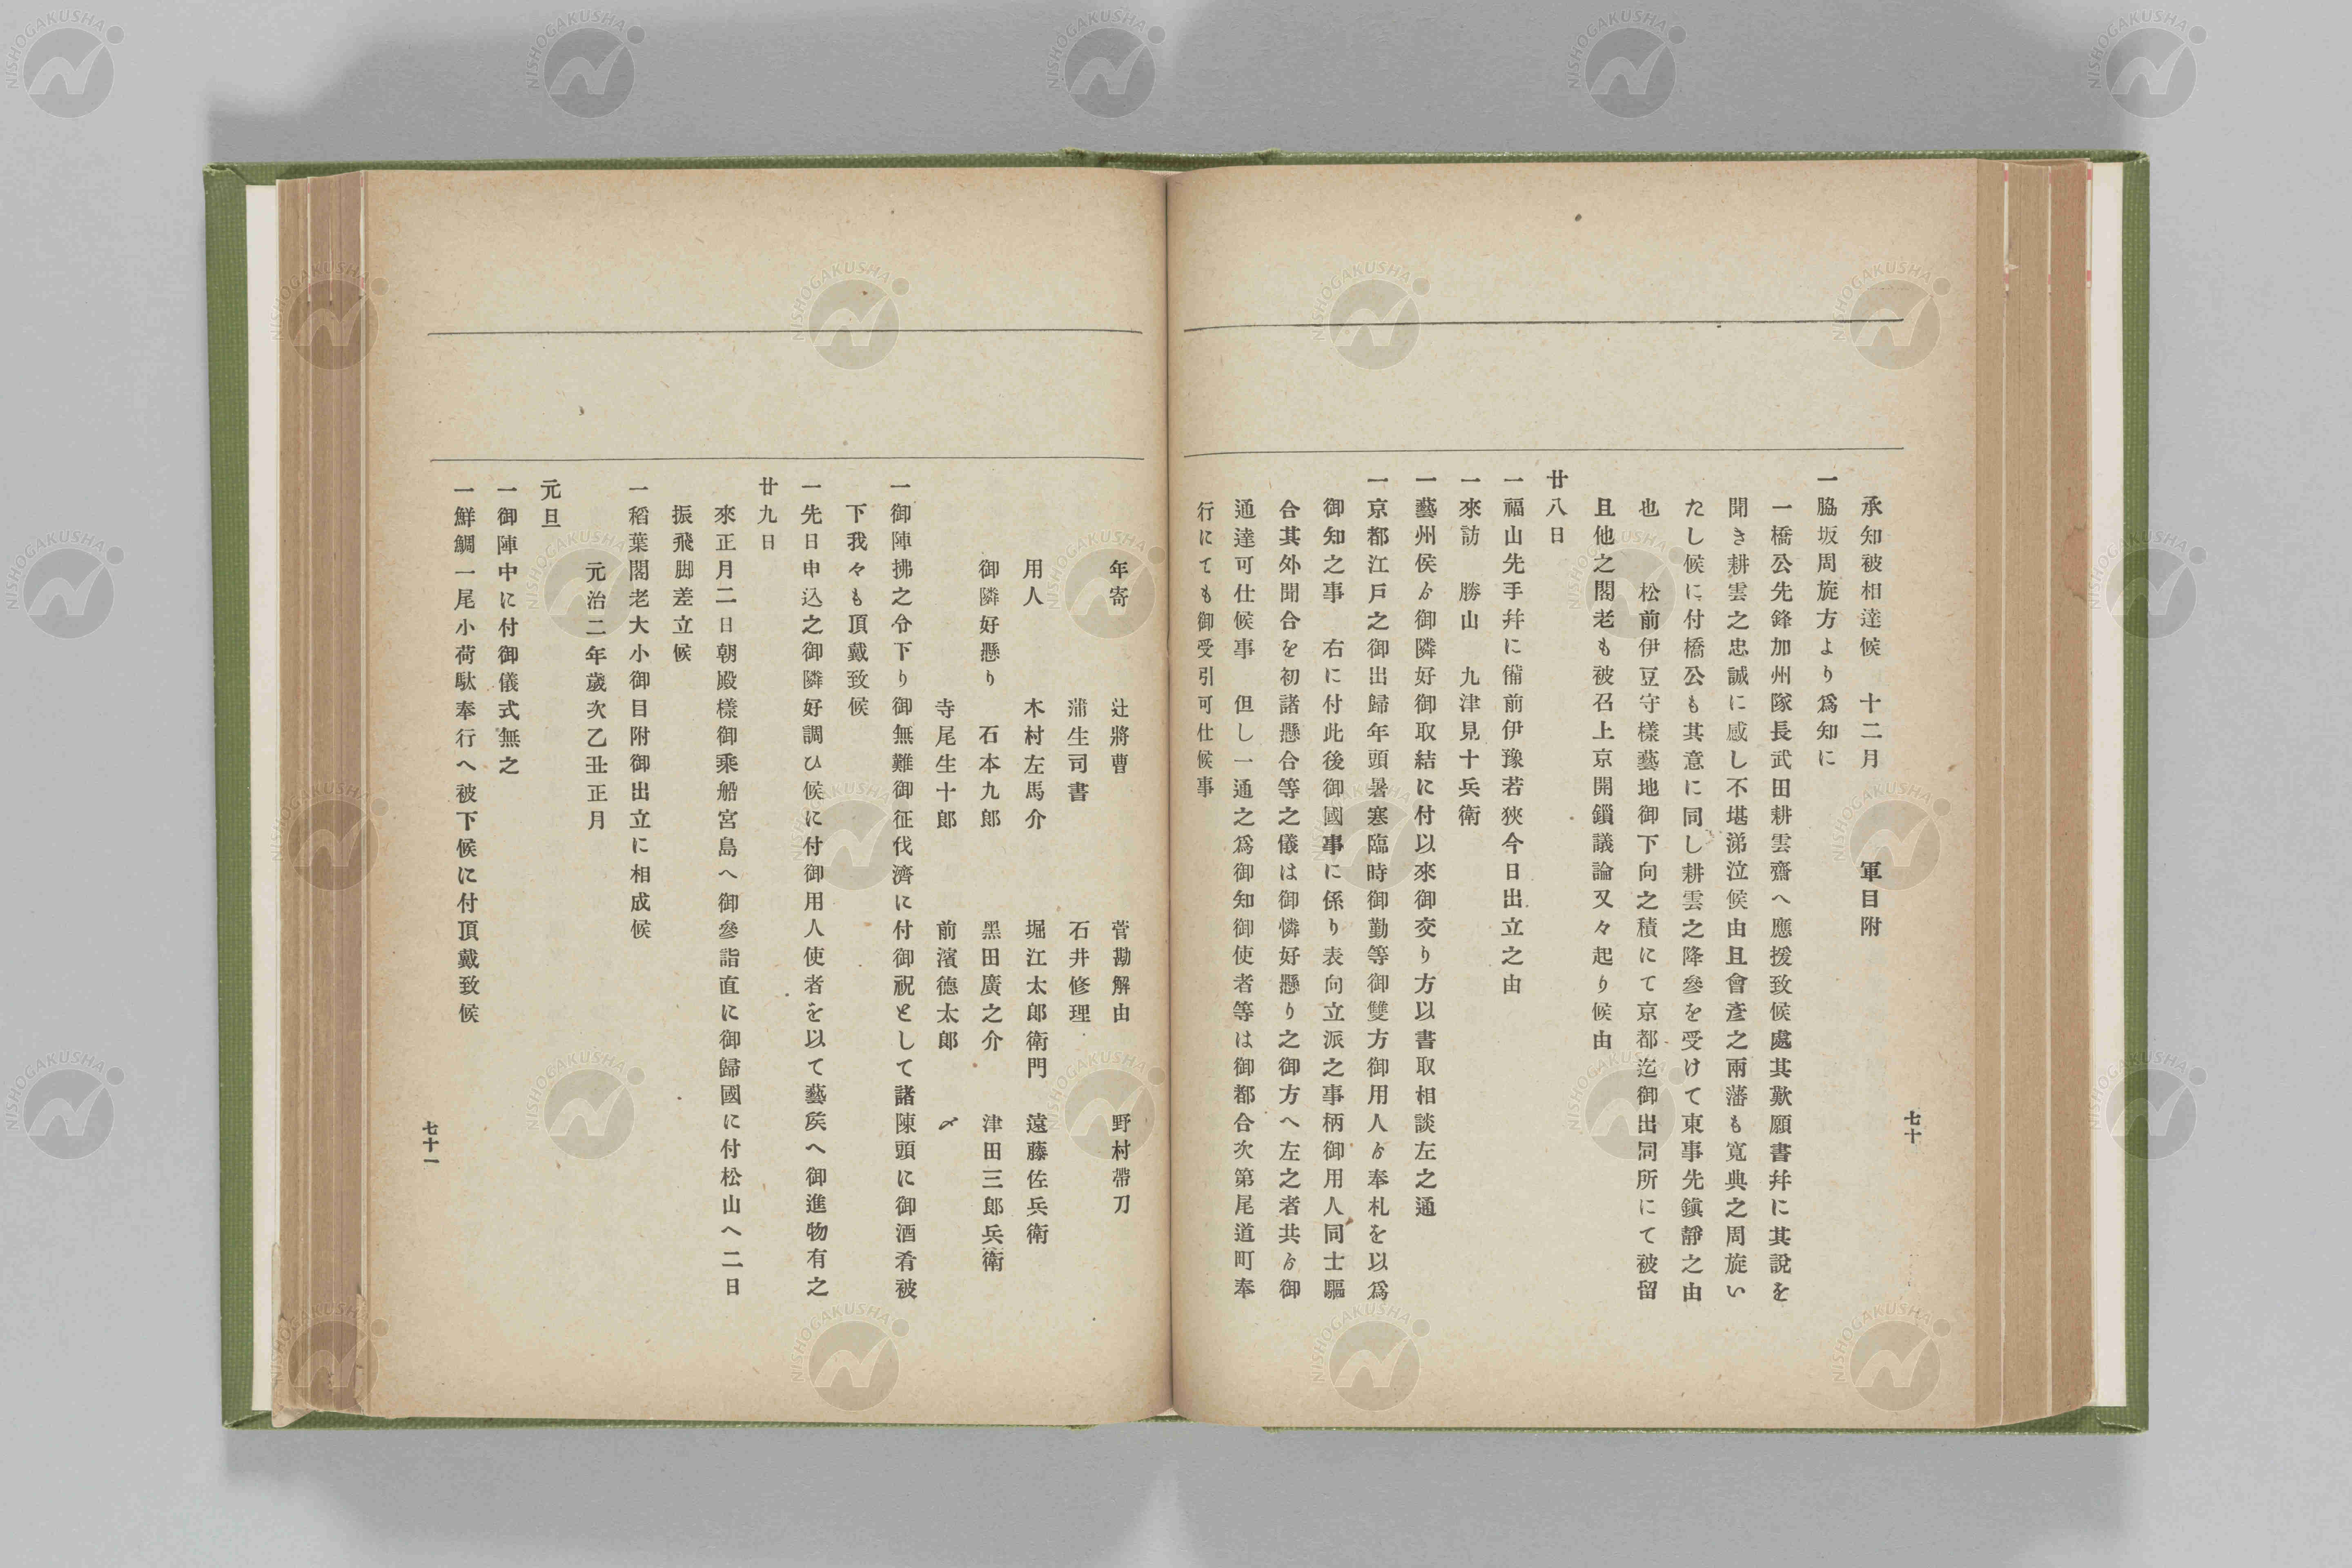 承知被相達候　十二月　　　軍目附
一脇坂周旋方より爲知に
一橋公先鋒加州隊長武田耕雲齋へ應援致候處其歎願書幷に其說を
聞き耕雲之忠誠に感し不堪涕泣候由且會彥之兩藩も寬典之周旋い
たし候に付橋公も其意に同し耕雲之降參を受けて東事先鎭靜之由
也　　松前伊豆守樣藝地御下向之積にて京都迄御出同所にて被留
且他之閣老も被召上京開鎖議論又々起り候由
廿八日
一福山先手幷に備前伊豫若狹今日出立之由
一來訪　勝山　九津見十兵衛
一藝州侯ゟ御隣好御取結に付以來御交り方以書取相談左之通
一京都江戶之御出歸年頭暑寒臨時御勤等御雙方御用人ゟ奉札を以爲
御知之事　右に付此後御國事に係り表向立派之事柄御用人同士驅
合其外聞合を初諸懸合等之儀は御憐好懸り之御方へ左之者共ゟ御
通達可仕候事　但し一通之爲御知御使者等は御都合次第尾道町奉
行にても御受引可仕候事
七十
年寄　　　辻將曹　　　菅勘解由　　　野村帶刀
蒲生司書　　　石井修理
用人　　　木村左馬介　　　堀江太郎衛門　遠藤佐兵衛
御隣好懸り　石本九郎　　　黑田廣之介　　津田三郎兵衛
寺尾生十郎　　　前濱德太郎　　〆
一御陣拂之令下り御無難御征伐濟に付御祝として諸陳頭に御酒肴被
下我々も頂戴致候
一先日申込之御隣好調ひ候に付御用人使者を以て藝矦へ御進物有之
廿九日
來正月二日朝殿樣御乘船宮島へ御參詣直に御歸國に付松山へ二日
振飛脚差立候
一稻葉閣老大小御目附御出立に相成候
元治二年歲次乙丑正月
元旦
一御陣中に付御儀式無之
一鮮鯛一尾小荷駄奉行へ被下候に付頂戴致候
七十一
NISHOGAKUSHA